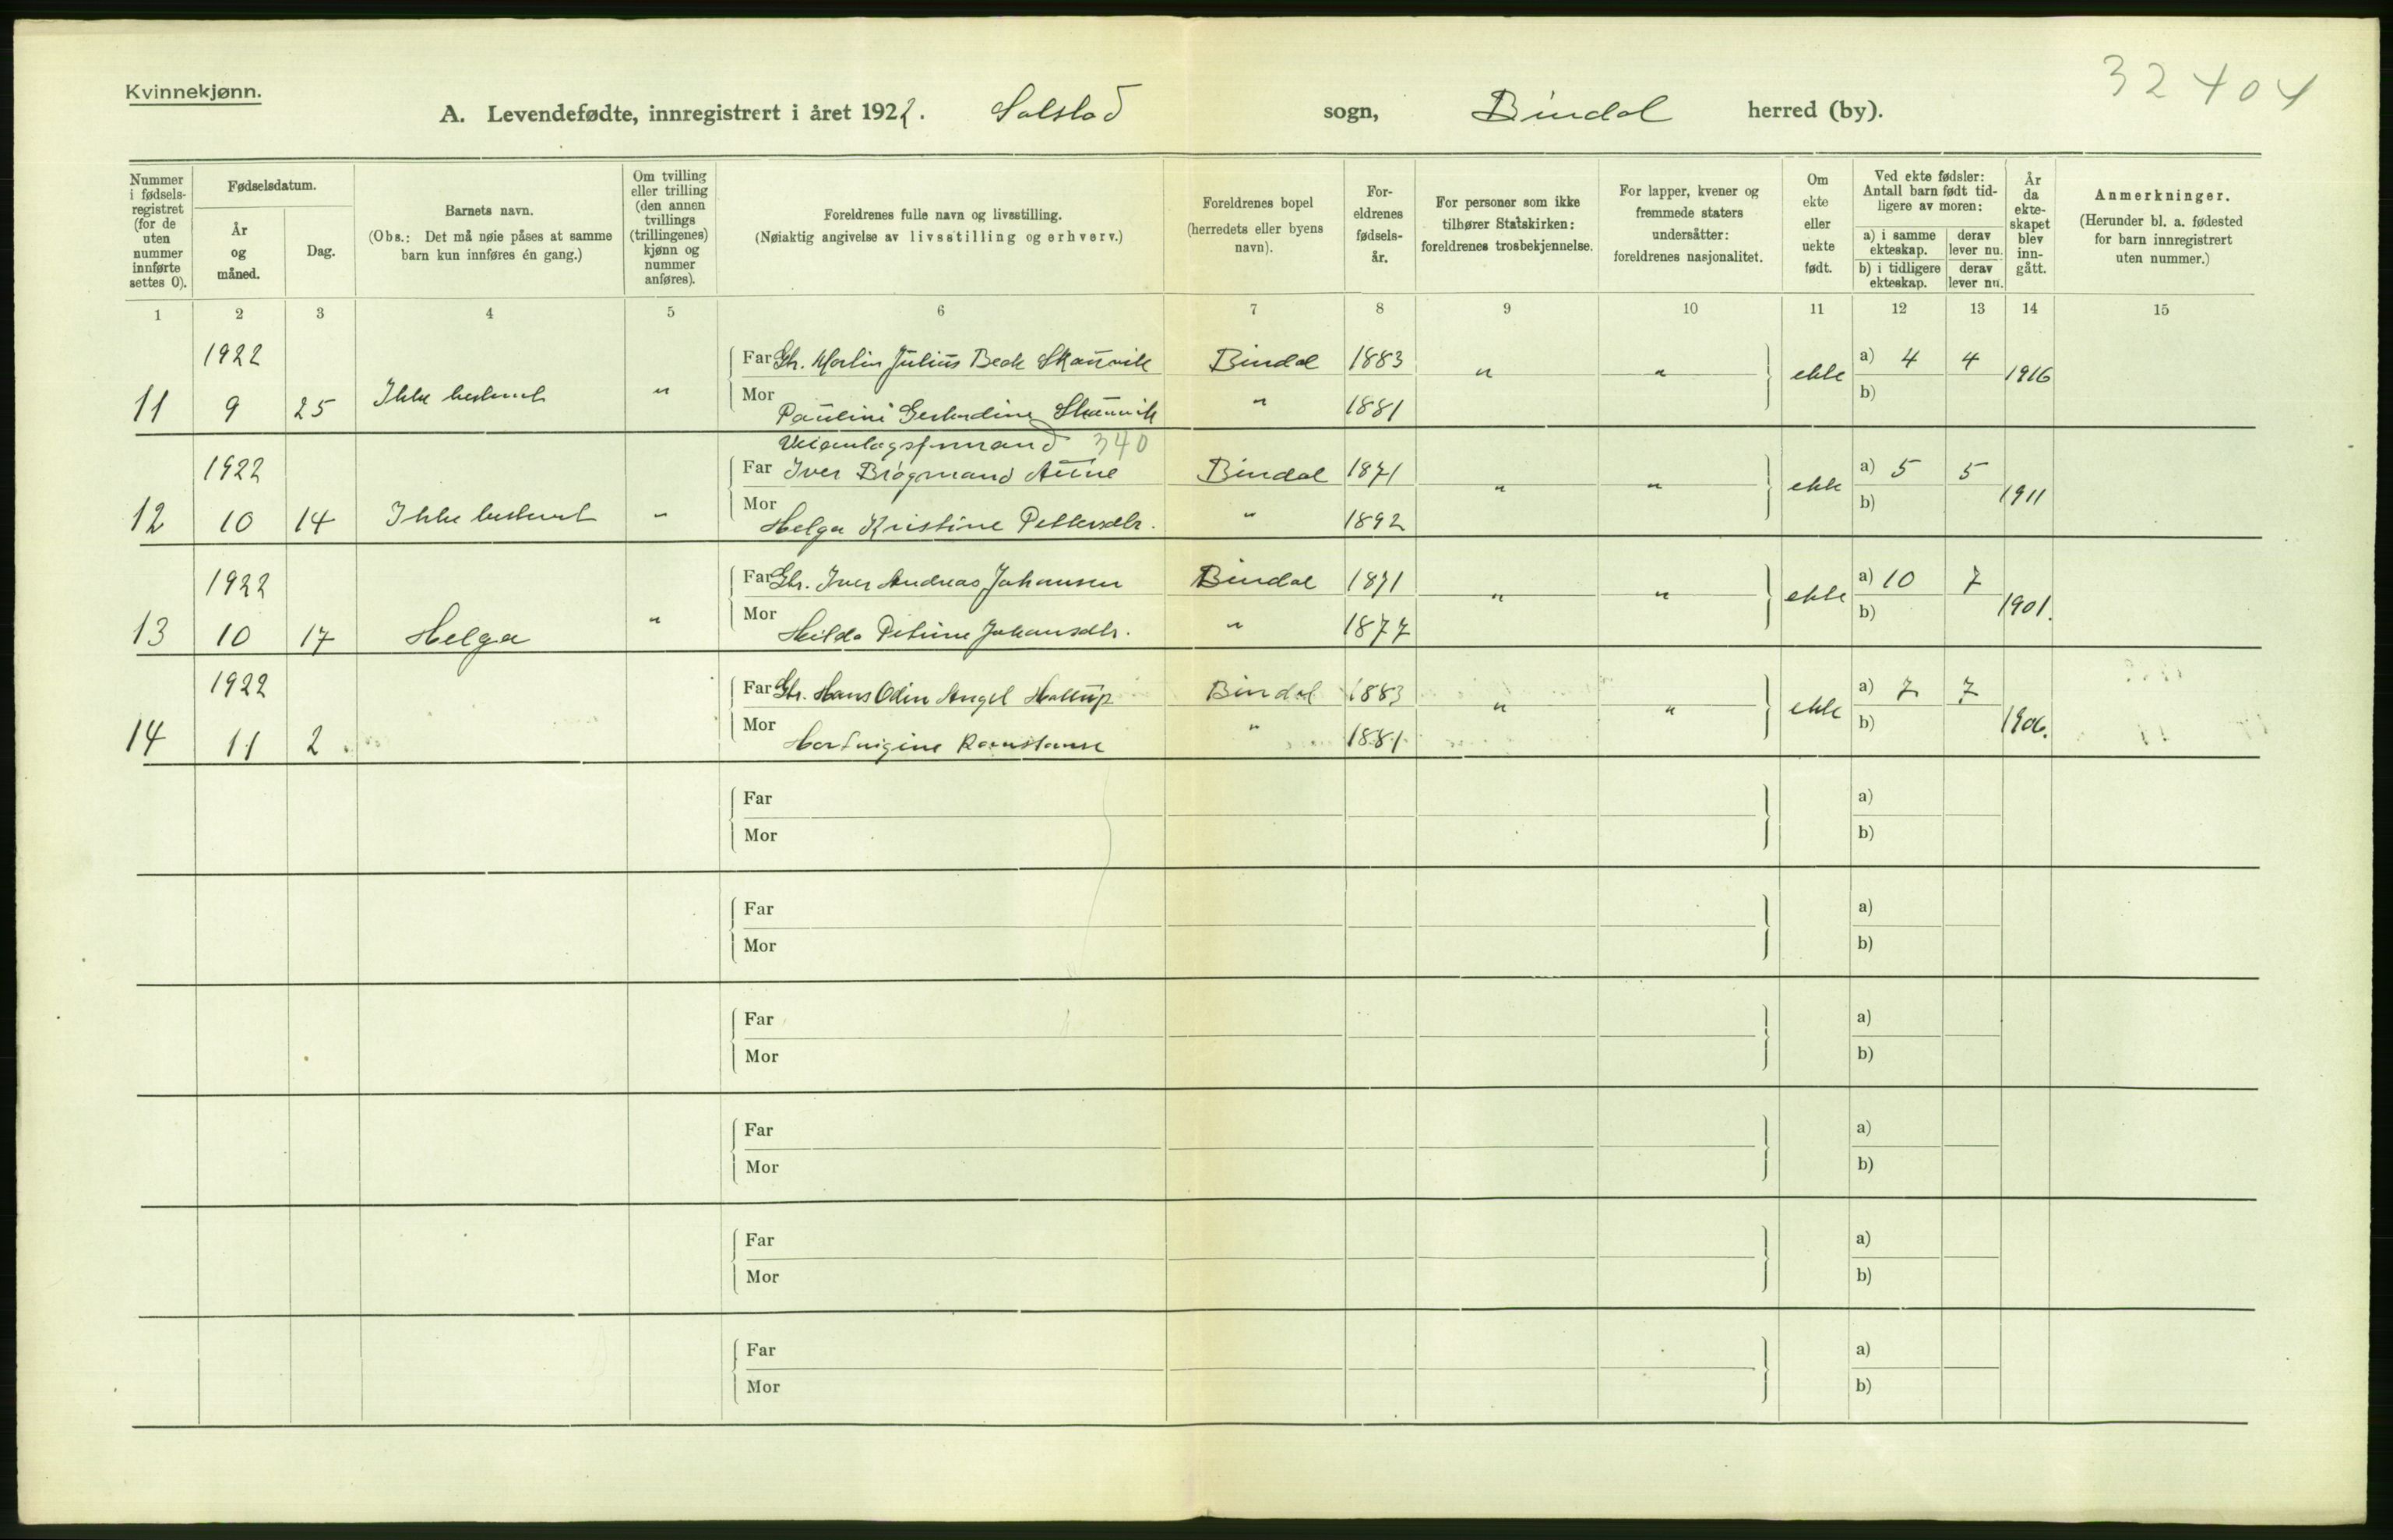 Kvinnekjønn.
32404
A. Levendefødte, innregistrert i året 1922. Solstad sogn, Bindal herred (by).
Nummer i fødselsregistret (for de uten nummer innførte settes 0).
Fødselsdatum.
År og måned.
Dag.
Barnets navn.
(Obs.: Det må nøie påses at samme barn kun innføres én gang.)
Om tvilling eller trilling (den annen tvillings (trillingenes) kjønn og nummer anføres).
Foreldrenes fulle navn og livsstilling.
(Nøiaktig angivelse av livsstilling og erhverv.)
Foreldrenes bopel (herredets eller byens navn).
Foreldrenes fødselsår.
For personer som ikke tilhører Statskirken: foreldrenes trosbekjennelse.
For lapper, kvener og fremmede staters undersåtter: foreldrenes nasjonalitet.
Om ekte eller uekte født.
Ved ekte fødsler: Antall barn født tidligere av moren:
a) i samme ekteskap. derav lever nu.
b) i tidligere ekteskap. derav lever nu.
År da ekteskapet blev inngått.
Anmerkninger.
(Herunder bl. a. fødested for barn innregistrert uten nummer.)
1 2 3 4 5 6 7 8 9 10 11 12 13 14 15
1922 Far Gbr. Martin Julius Beck Skauvik Bindal 1883 " " ekte a) 4 4 1916
11 9 25 Ikke bestemt " Mor Pauline Skauvik " 1881 b)
340
1922 Far Iver Aune Bindal 1871 " " ekte a) 5 5 1911
12 10 14 Ikke bestemt " Mor Helga Kristine Pettersdtr. " 1892 b)
1922 Far Gbr. Iver Andreas Johansen Bindal 1871 " " ekte a) 10 7 1901.
13 10 17 Helga " Mor Hilda Petrine Johansdtr. " 1877 b)
1922 Far Gbr. Hans Odin Angel Bindal 1883 " " ekte a) 7 7 1906.
14 11 2 Mor " 1881 b)
Far a)
Mor b)
Far a)
Mor b)
Far a)
Mor b)
Far a)
Mor b)
Far a)
Mor b)
Far a)
Mor b)